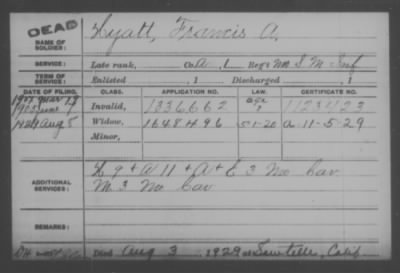 DEAD
NAME OF SOLDIER: Hyatt, Francis A.
SERVICE: Late rank, Co. A, 1 Reg't Mo S M Inf
TERM OF SERVICE: Enlisted , 1 Discharged , 1
DATE OF FILING. CLASS. APPLICATION NO. LAW. CERTIFICATE NO.
Invalid, 1336662 1123423
1929 Aug 8 Widow, 1648496 5-1-20 a-11-5-29
Minor,
ADDITIONAL SERVICES: L 9 & A 11 & A & E 3 Mo Cav
M 3 Mo Cav
REMARKS:
Died Aug 3, 1929 at Sawtelle, Calif